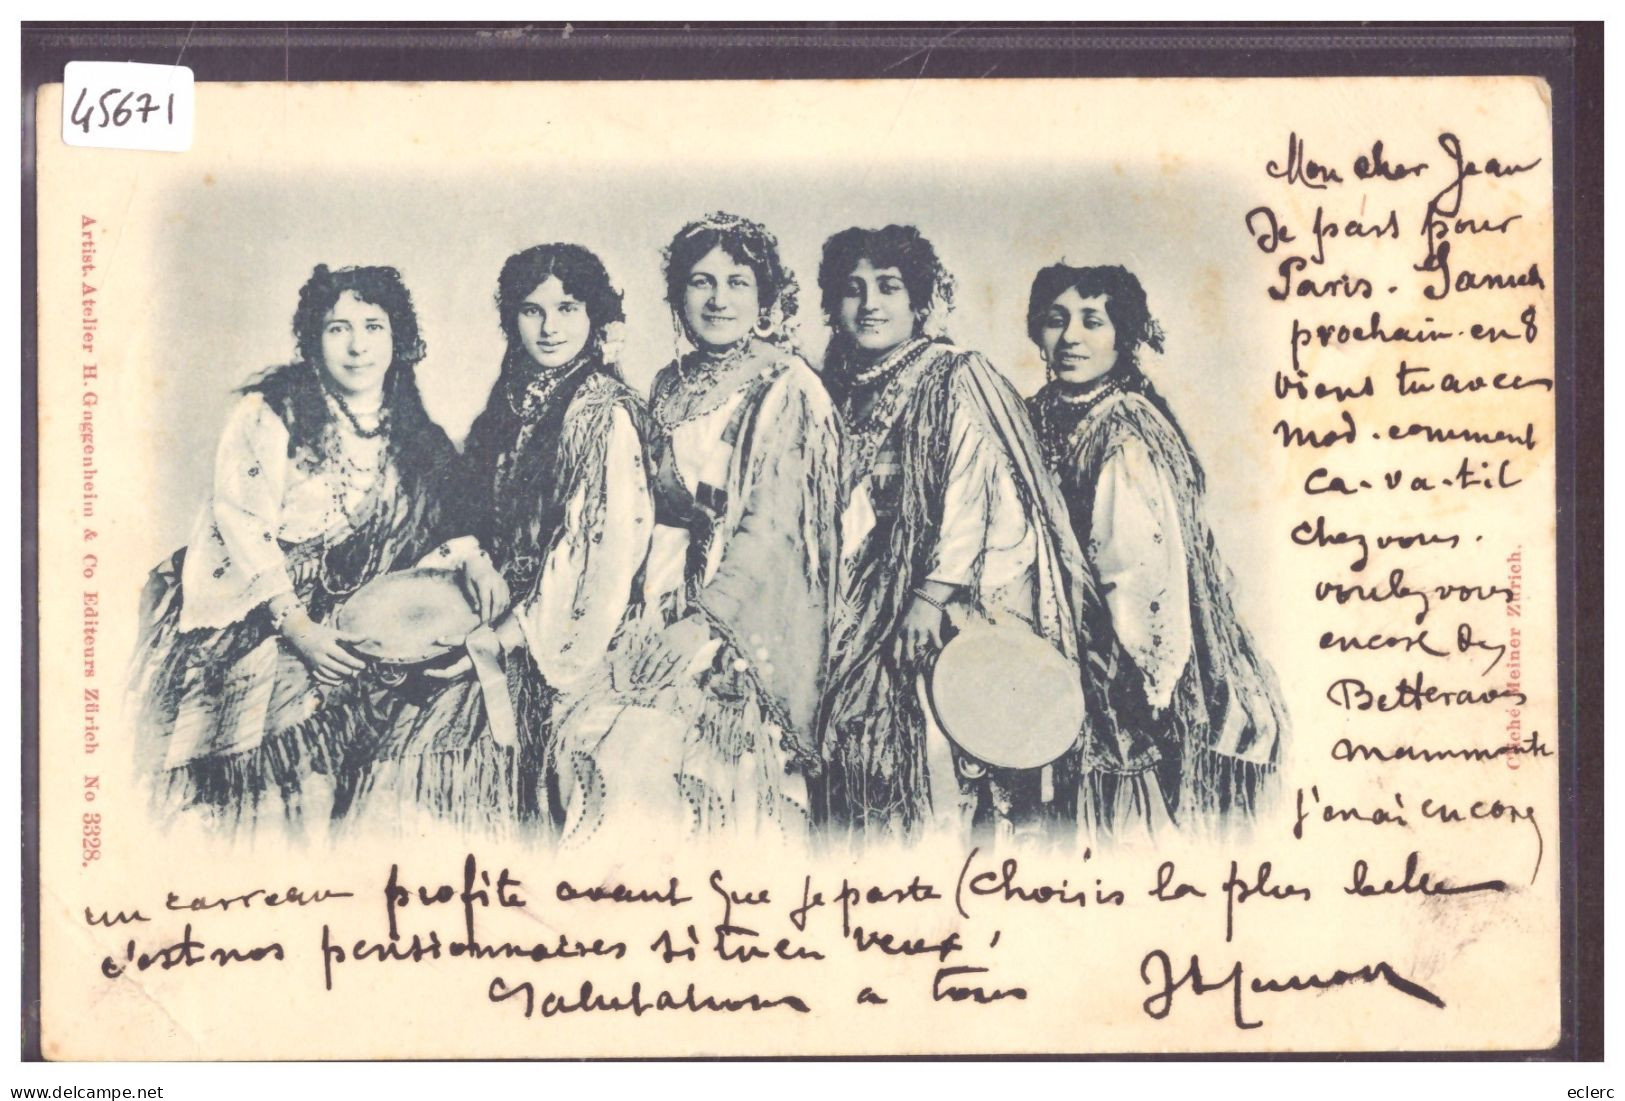 45671
Artist. Atelier H. Gaggenheim & Co Editeurs Zürich No 3328.
Cliché Meiner Zürich.
Mon cher Jean
Je pars pour
Paris. Samedi
prochain. en 8
viens tu avec
mod. comment
ca-va-t-il
chez vous.
voulez vous
encore des
Betteraves
mammouth
j'en ai encore
un carreau profite avant que je parte (choisis la plus belle
c'est nos pensionnaires si tu en veux!
Salutations a tous